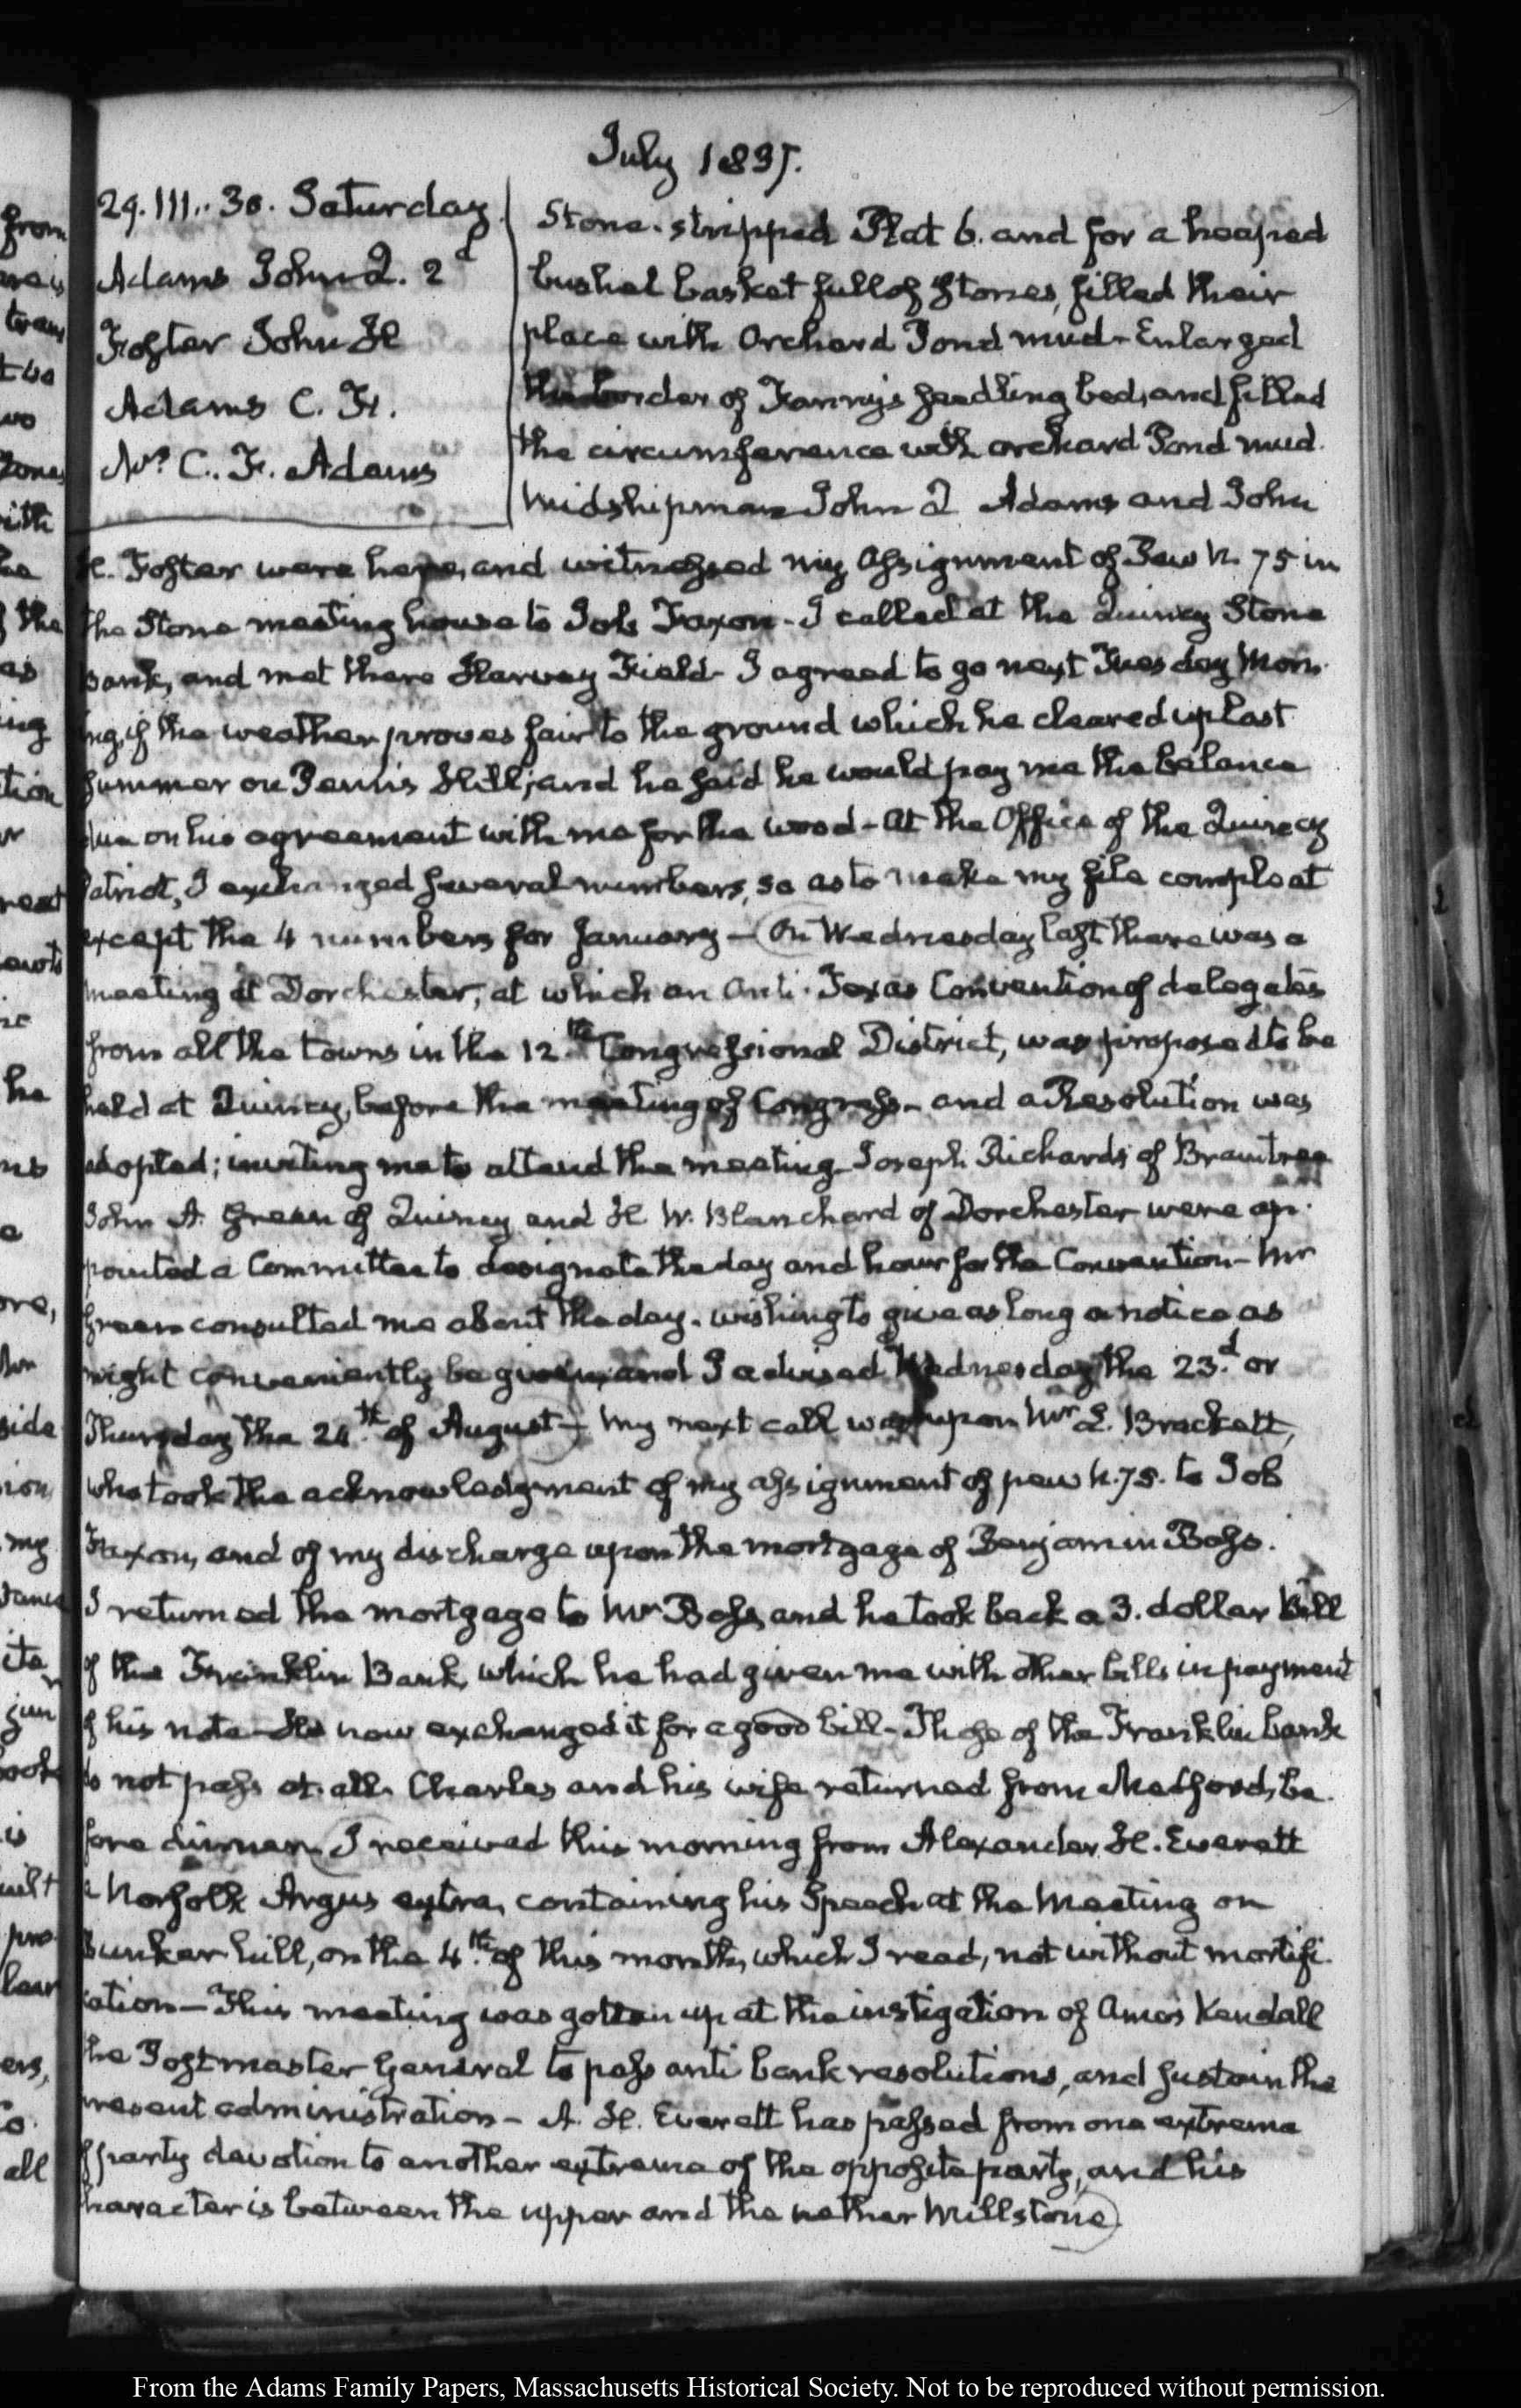 July 1837.
29. III.. 30. Saturday.
Adams John Q. 2d
Foster John H
Adams C. F.
Mrs C. F. Adams
Stone-stripped Plat 6. and for a heaped
bushel basket full of Stones, filled their
place with Orchard Pond mud- Enlarged
the border of Fanny's seedling bed, and filled
the circumference with orchard Pond mud.
Midshipman John Q Adams and John
H. Foster were here, and witnessed my Assignment of Pew N. 75 in
the Stone meeting house to Job Faxon- I called at the Quincy Stone
Bank, and met there Harvey Field- I agreed to go next Tuesday Morn-
ing, if the weather proves fair to the ground which he cleared up last
Summer on Penn's Hill; and he said he would pay me the balance
due on his agreement with me for the wood- At the Office of the Quincy
Patriot, I exchanged several numbers, so as to make my file compleat
except the 4 numbers for January- On Wednesday last there was a
meeting at Dorchester, at which an Anti-Texas Convention of delegates
from all the towns in the 12.th Congressional District, was proposed to be
held at Quincy, before the meeting of Congress- and a Resolution was
adopted; inviting me to attend the meeting- Joseph Richards of Braintree
John A. Green of Quincy and H W. Blanchard of Dorchester were ap-
pointed a Committee to designate the day and hour for the Convention- Mr
Green consulted me about the day. wishing to give as long a notice as
might conveniently be given, and I advised Wednesday the 23.d or
Thursday the 24.th of August- My next call was upon Mr L. Brackett,
who took the acknowledgment of my assignment of pew N. 75. to Job
Faxon, and of my discharge upon the mortgage of Benjamin Bass.
I returned the mortgage to Mr Bass, and he took back a 3. dollar Bill
of the Franklin Bank, which he had given me with other bills in payment
of his note- He now exchanged it for a good bill- Those of the Franklin bank
do not pass at all. Charles and his wife returned from Medford, be-
fore dinner. I received this morning from Alexander H. Everett
a Norfolk Argus extra, containing his Speech at the Meeting on
Bunker hill, on the 4.th of this month, which I read, not without mortifi-
cation- This meeting was gotten up at the instigation of Amos Kendall
the Postmaster General to pass anti bank resolutions, and sustain the
present administration- A. H. Everett has passed from one extreme
of party devotion to another extreme of the opposite party, and his
character is between the upper and the nether Millstone
From the Adams Family Papers, Massachusetts Historical Society. Not to be reproduced without permission.